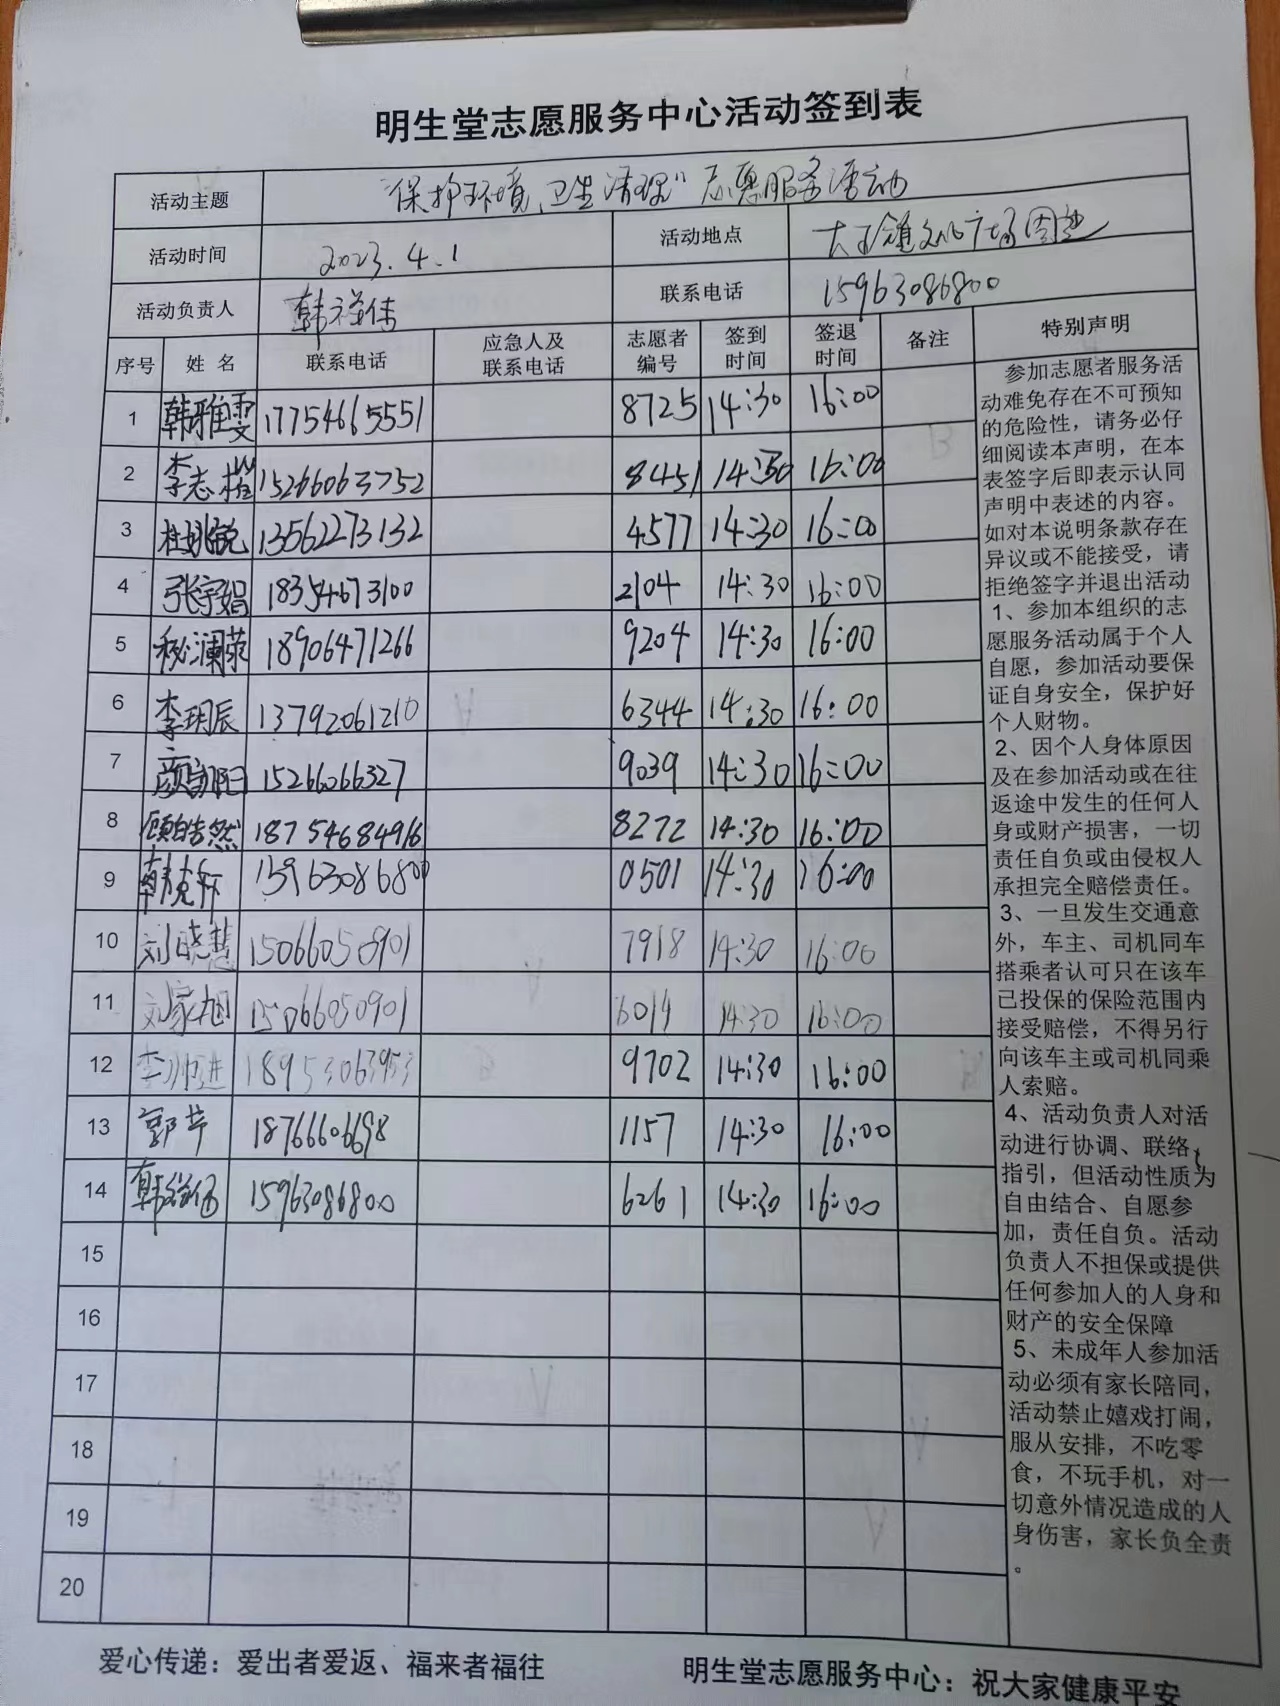 明生堂志愿服务中心活动签到表
活动主题 "保护环境、卫生清理"志愿服务活动
活动时间 2023.4.1 活动地点 大王镇文化广场周边
活动负责人 韩祥伟 联系电话 15963086800
序号 姓名 联系电话 应急人及联系电话 志愿者编号 签到时间 签退时间 备注 特别声明
1 韩雅雯 17754665551 8725 14:30 16:00
2 李志 15266063752 8451 14:30 16:00
3 杜 13562273132 4577 14:30 16:00
4 张宇娟 18354673100 2104 14:30 16:00
5 秘澜 18906471266 9204 14:30 16:00
6 李玥辰 13792061210 6344 14:30 16:00
7 颜 15266066327 9039 14:30 16:00
8 顾皓然 18754684916 8272 14:30 16:00
9 韩克轩 15963086800 0501 14:30 16:00
10 刘晓慧 15066050901 7918 14:30 16:00
11 刘家旭 15066050901 6019 14:30 16:00
12 李 进 18953063953 9702 14:30 16:00
13 郭芹 18766606698 1157 14:30 16:00
14 韩祥伟 15963086800 6261 14:30 16:00
15
16
17
18
19
20
参加志愿者服务活
动难免存在不可预知
的危险性，请务必仔
细阅读本声明，在本
表签字后即表示认同
声明中表述的内容。
如对本说明条款存在
异议或不能接受，请
拒绝签字并退出活动
1、参加本组织的志
愿服务活动属于个人
自愿，参加活动要保
证自身安全，保护好
个人财物。
2、因个人身体原因
及在参加活动或在往
返途中发生的任何人
身或财产损害，一切
责任自负或由侵权人
承担完全赔偿责任。
3、一旦发生交通意
外，车主、司机同车
搭乘者认可只在该车
已投保的保险范围内
接受赔偿，不得另行
向该车主或司机同乘
人索赔。
4、活动负责人对活
动进行协调、联络、
指引，但活动性质为
自由结合、自愿参
加，责任自负。活动
负责人不担保或提供
任何参加人的人身和
财产的安全保障
5、未成年人参加活
动必须有家长陪同，
活动禁止嬉戏打闹，
服从安排，不吃零
食，不玩手机，对一
切意外情况造成的人
身伤害，家长负全责
。
爱心传递：爱出者爱返、福来者福往 明生堂志愿服务中心：祝大家健康平安